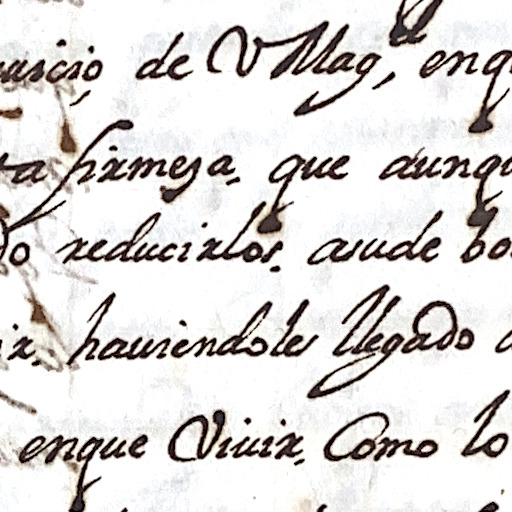 de VMag.d, enq
ta firmeza, que aunqu
do reducirlos. asude bo
ir, haviendoles llegado
enque Vivir, Como lo